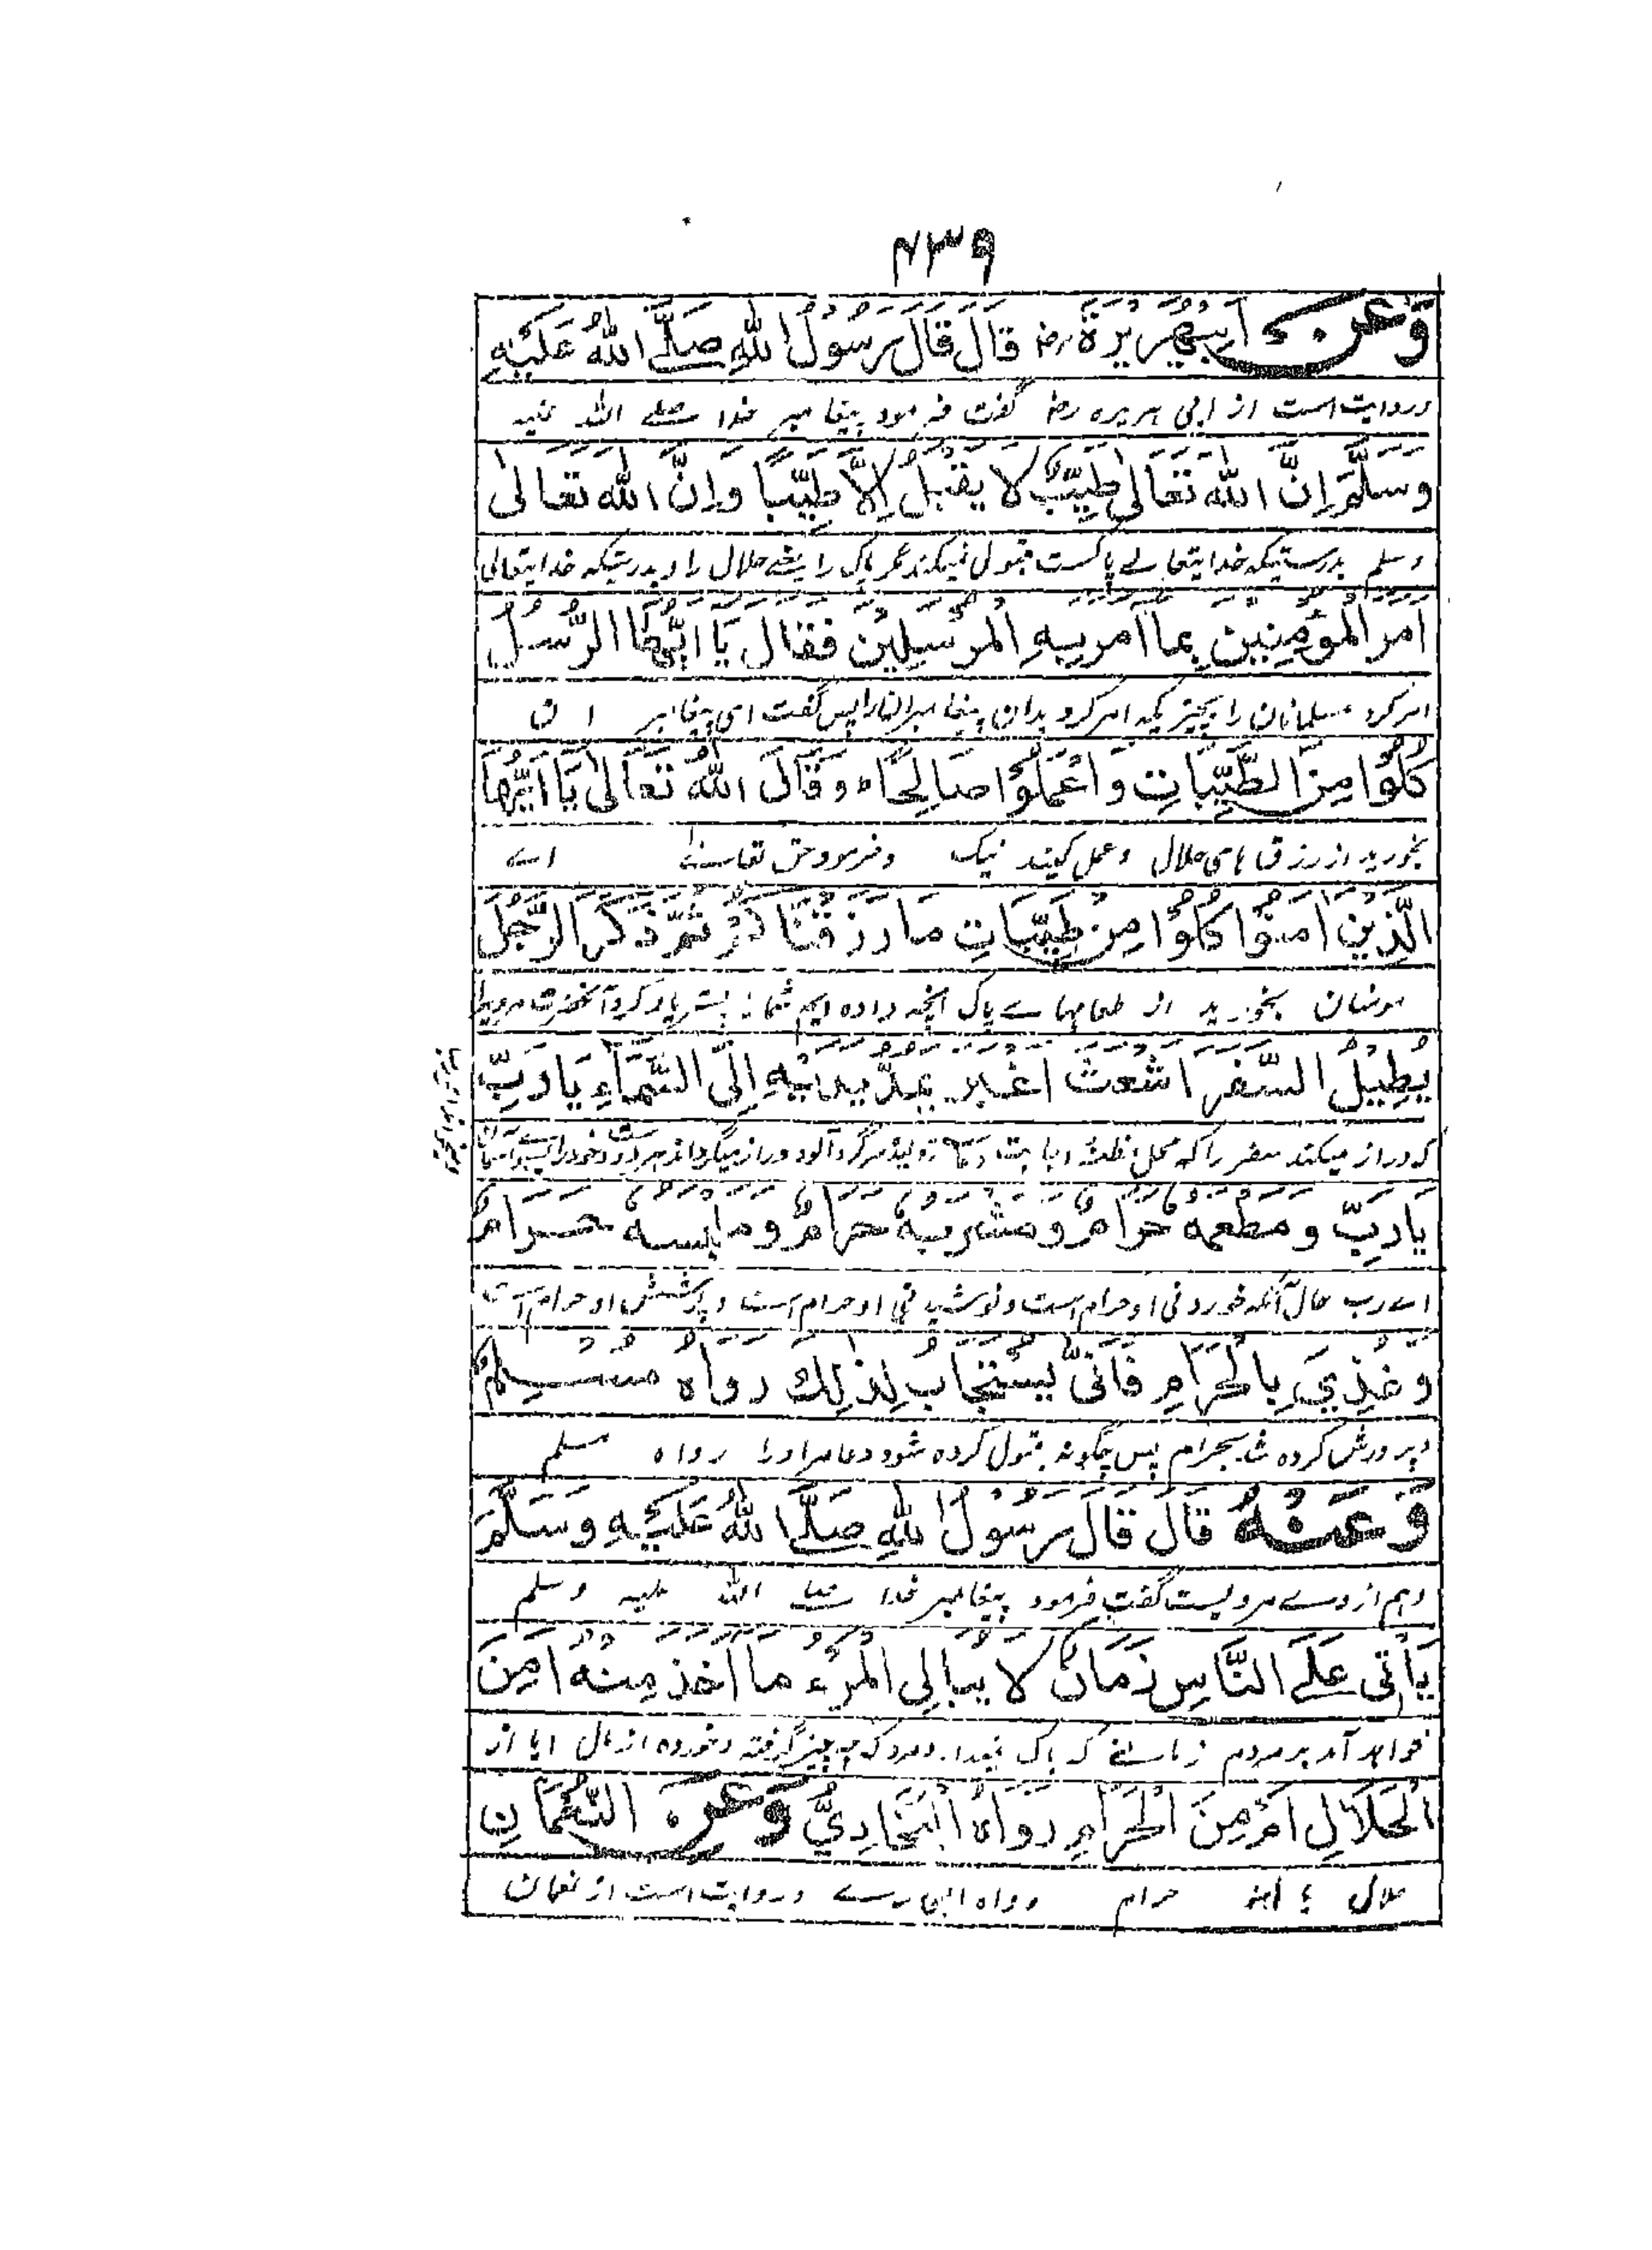 ۶۳۹
وَعَنْ اَبِيْ هُرَيْرَةَ رض قَالَ قَالَ رَسُوْلُ اللهِ صَلَّى اللهُ عَلَيْهِ
وروایت است از ابی هریره رض گفت فرمود پیغامبر خدا صلے الله علیه
وَسَلَّمَ اِنَّ اللهَ تَعَالٰى طَيِّبٌ لَا يَقْبَلُ اِلَّا طَيِّبًا وَاِنَّ اللهَ تَعَالٰى
وسلم بدرستیکه خدایتعالے پاکست قبول نمیکند مگر پاک را یعنے حلال را و بدرستیکه خدایتعالی
اَمَرَ الْمُؤْمِنِيْنَ بِمَا اَمَرَ بِهِ الْمُرْسَلِيْنَ فَقَالَ يَا اَيُّهَا الرُّسُلُ
امر کرد مسلمانان را بچیزیکه امر کرد بدان پیغامبران را پس گفت ای پیغامبر ان
كُلُوْا مِنَ الطَّيِّبَاتِ وَاعْمَلُوْا صَالِحًا وَقَالَ اللهُ تَعَالٰى يَا اَيُّهَا
بخورید از رزق های حلال وعمل کنید نیک وفرمود حق تعالے اے
الَّذِيْنَ اٰمَنُوْا كُلُوْا مِنْ طَيِّبَاتِ مَا رَزَقْنَاكُمْ ثُمَّ ذَكَرَ الرَّجُلَ
مومنان بخورید از طعامهاے پاک آنچه داده ایم شما را پستر یاد کرد آنحضرت مردیرا
يُطِيْلُ السَّفَرَ اَشْعَثَ اَغْبَرَ يَمُدُّ يَدَيْهِ اِلَى السَّمَاءِ يَا رَبِّ
که دراز میکند سفر را که محل
يَا رَبِّ وَمَطْعَمُهُ حَرَامٌ وَمَشْرَبُهُ حَرَامٌ وَمَلْبَسُهُ حَرَامٌ
اے رب حال آنکه خوردنی او حرام است و نوشیدنی او حرام است و پوشش او حرام است
وَغُذِيَ بِالْحَرَامِ فَاَنّٰى يُسْتَجَابُ لِذٰلِكَ رَوَاهُ مُسْلِمٌ
وپرورش کرده شد بحرام پس چگونه قبول کرده شود دعا مر اورا رواه مسلم
وَعَنْهُ قَالَ قَالَ رَسُوْلُ اللهِ صَلَّى اللهُ عَلَيْهِ وَسَلَّمَ
وهم از وے مرویست گفت فرمود پیغامبر خدا صلے الله علیه وسلم
يَأْتِيْ عَلَى النَّاسِ زَمَانٌ لَا يُبَالِي الْمَرْءُ مَا اَخَذَ مِنْهُ اَمِنَ
خواهد آمد بر مردم زمانے که باک ندارد مرد که چه چیز گرفته و خورده از مال ایا از
الْحَلَالِ اَمْ مِنَ الْحَرَامِ رَوَاهُ الْبُخَارِيُّ وَعَنِ النُّعْمَانِ
حلال یا از حرام رواه البخارے وروایت است از نعمان